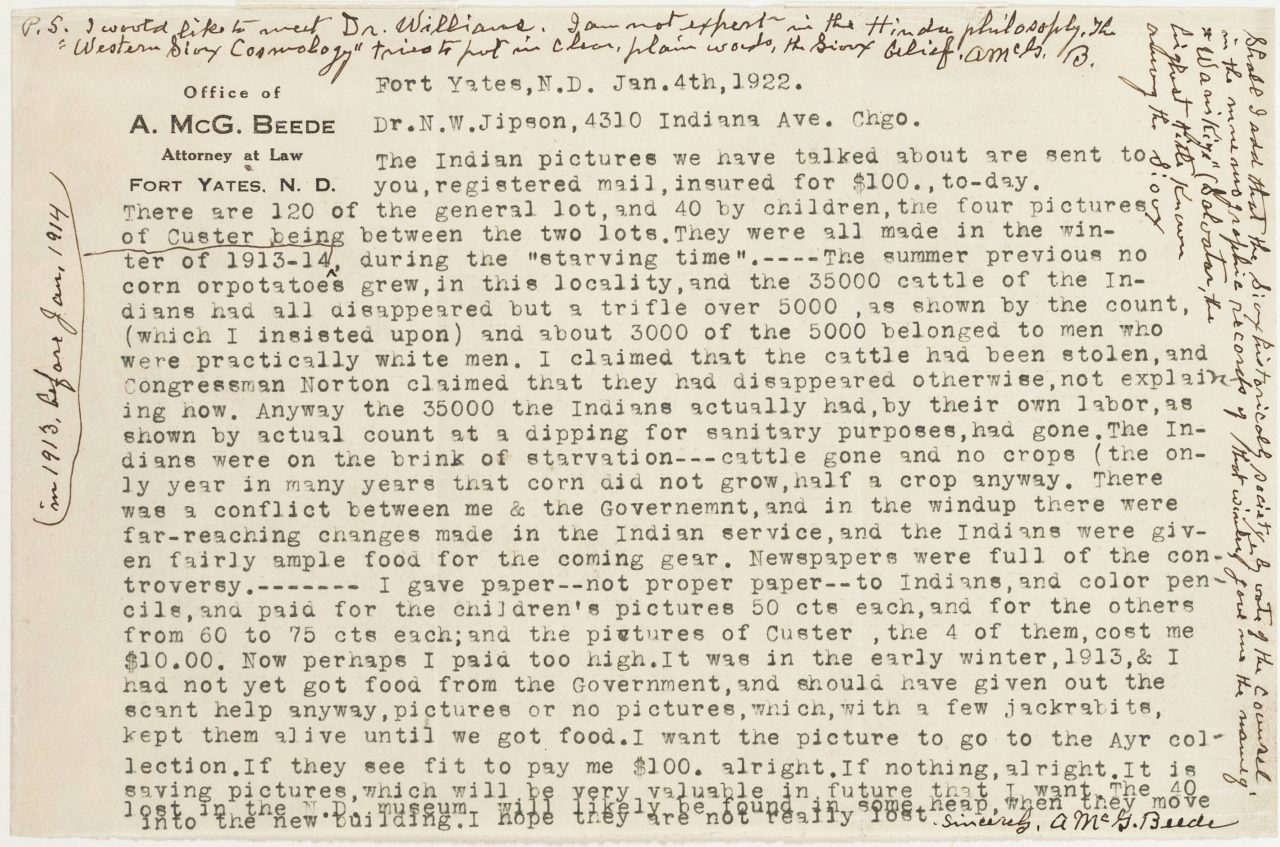 P.S. I would like to meet Dr. Williams. I am not expert in the Hindu philosophy. The
"Western Sioux Cosmology" tries to put in clear, plain words, the Sioux belief. A McG. B.
Office of
A. McG. BEEDE
Attorney at Law
FORT YATES, N. D.
Fort Yates,N.D. Jan.4th,1922.
Dr.N.W.Jipson,4310 Indiana Ave. Chgo.
The Indian pictures we have talked about are sent to
you,registered mail,insured for $100.,to-day.
There are 120 of the general lot,and 40 by children,the four pictures
of Custer being between the two lots.They were all made in the win-
ter of 1913-14, during the "starving time".----The summer previous no
corn orpotatoes grew,in this locality,and the 35000 cattle of the In-
dians had all disappeared but a trifle over 5000 ,as shown by the count,
(which I insisted upon) and about 3000 of the 5000 belonged to men who
were practically white men. I claimed that the cattle had been stolen,and
Congressman Norton claimed that they had disappeared otherwise,not explain-
ing how. Anyway the 35000 the Indians actually had,by their own labor,as
shown by actual count at a dipping for sanitary purposes,had gone.The In-
dians were on the brink of starvation---cattle gone and no crops (the on-
ly year in many years that corn did not grow,half a crop anyway. There
was a conflict between me & the Governemnt,and in the windup there were
far-reaching changes made in the Indian service,and the Indians were giv-
en fairly ample food for the coming gear. Newspapers were full of the con-
troversy.------- I gave paper--not proper paper--to Indians,and color pen-
cils,and paid for the children's pictures 50 cts each,and for the others
from 60 to 75 cts each;and the pictures of Custer ,the 4 of them,cost me
$10.00. Now perhaps I paid too high.It was in the early winter,1913,& I
had not yet got food from the Government,and should have given out the
scant help anyway,pictures or no pictures,which,with a few jackrabits,
kept them alive until we got food.I want the picture to go to the Ayr col-
lection.If they see fit to pay me $100. alright.If nothing,alright.It is
saving pictures,which will be very valuable in future that I want.The 40
lost in the N.D. museum will likely be found in some heap,when they move
into the new building.I hope they are not really lost.
Sincerely, A McG. Beede
(in 1913, before Jan, 1914
Shall I add that the Sioux historical society by vote of the Counsel
in the mnemonsgraphic records of that winter, gave me the name
* "Wanikiya" (Salvator, the
highest title known
among the Sioux